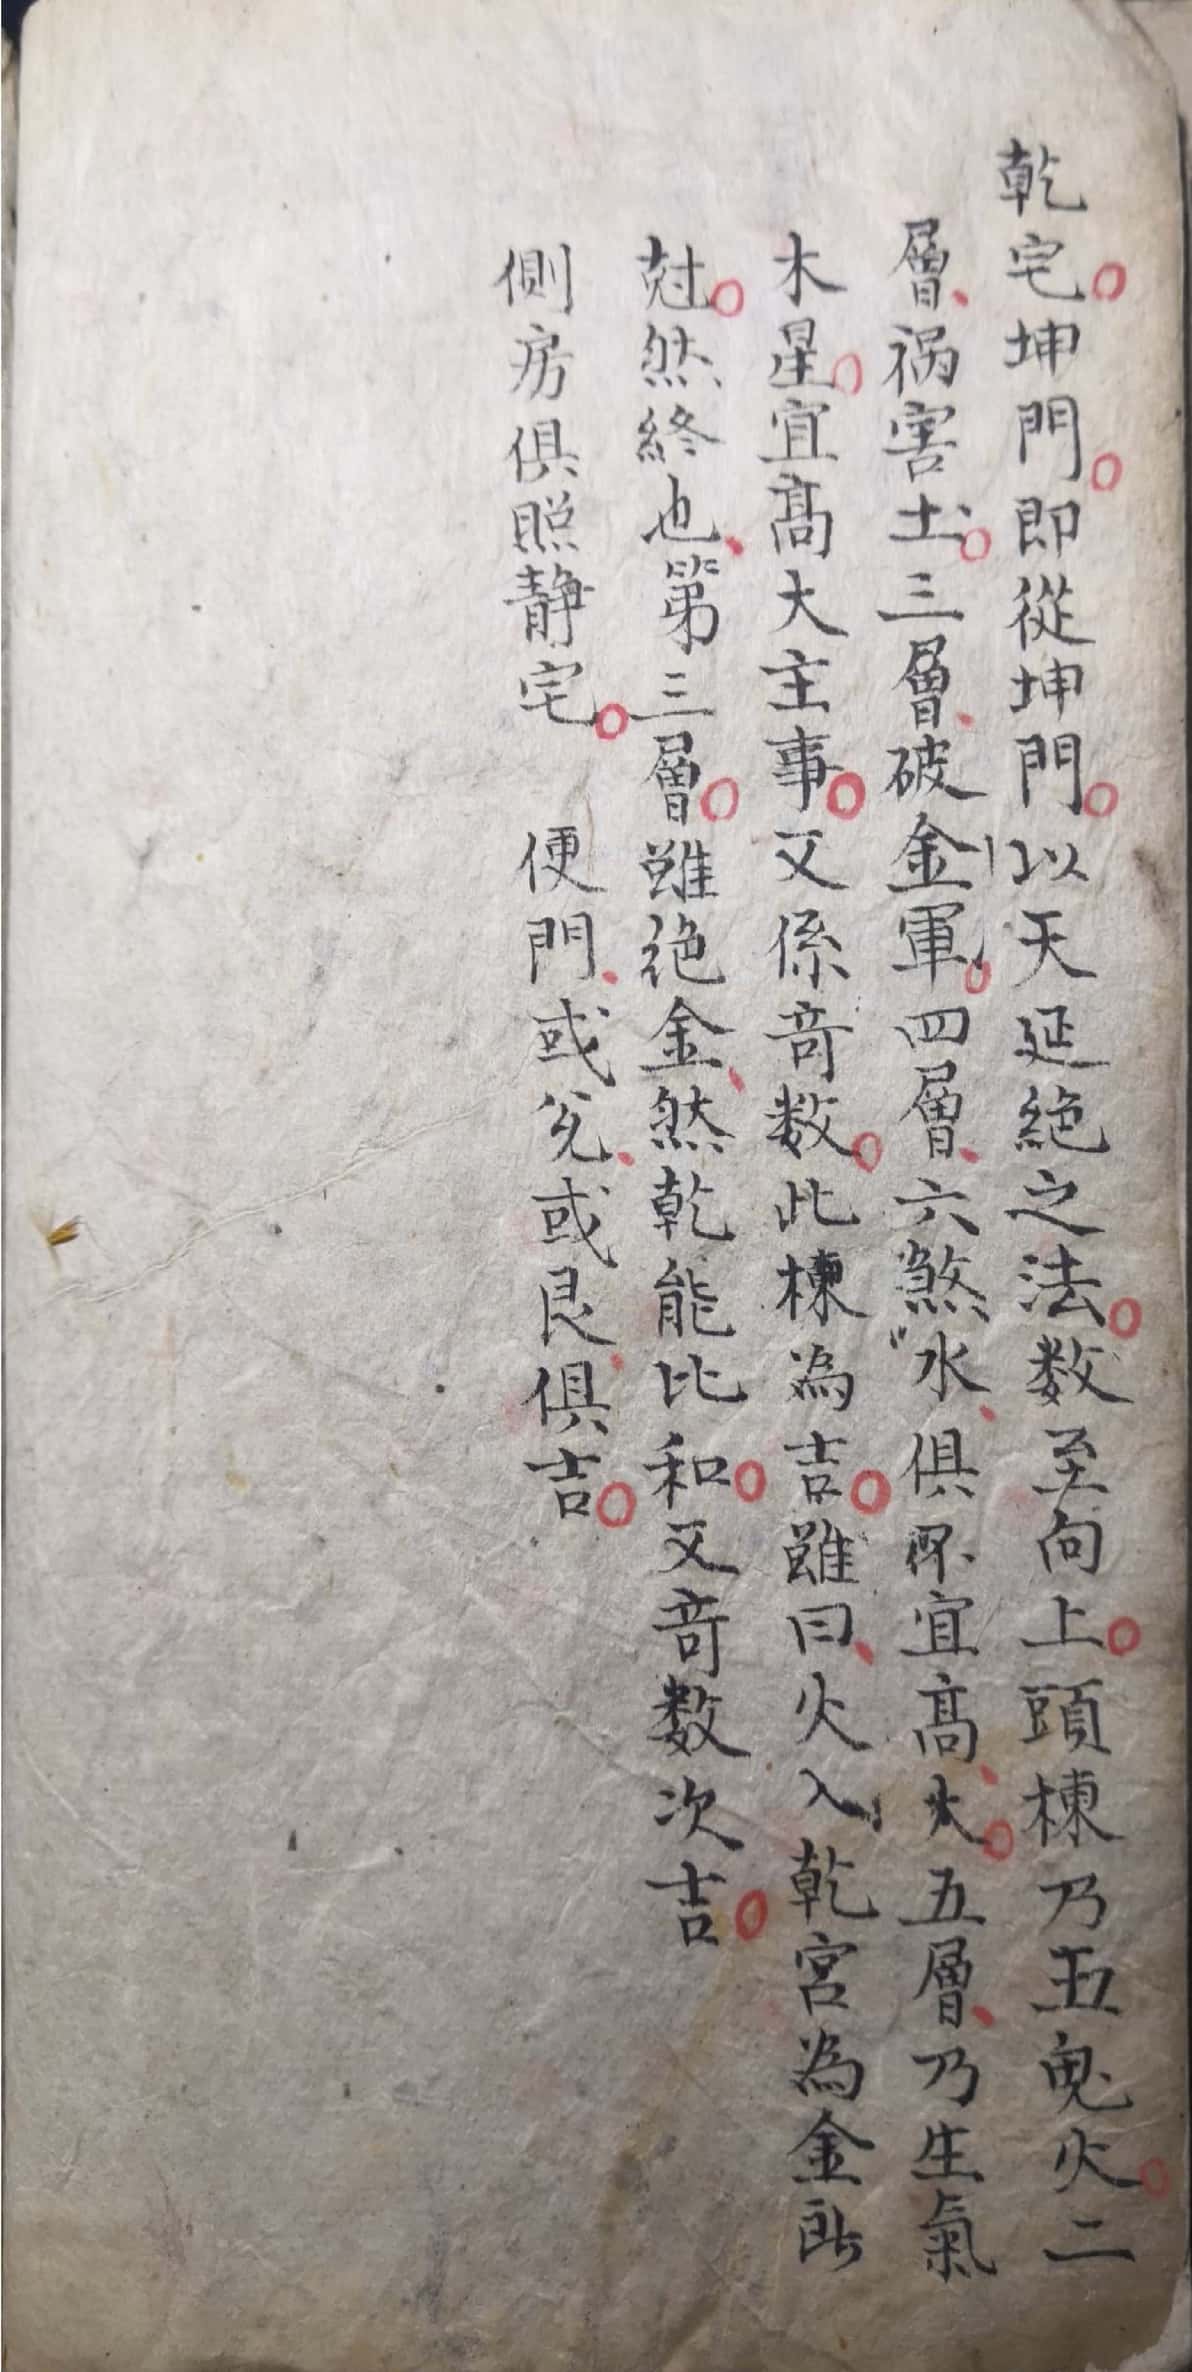 乾宅坤門即從坤門以天延絶之法数至向上頭棟乃五鬼火二
層祸害土三層破金軍四層六煞水俱不宜高大五層乃生氣
木星宜髙大主事又係竒数此棟為吉雖曰火入乾宮為金所
尅然終也第三層雖绝金然乾能比和又竒数次吉
側房俱照静宅 便門或兊或艮俱吉